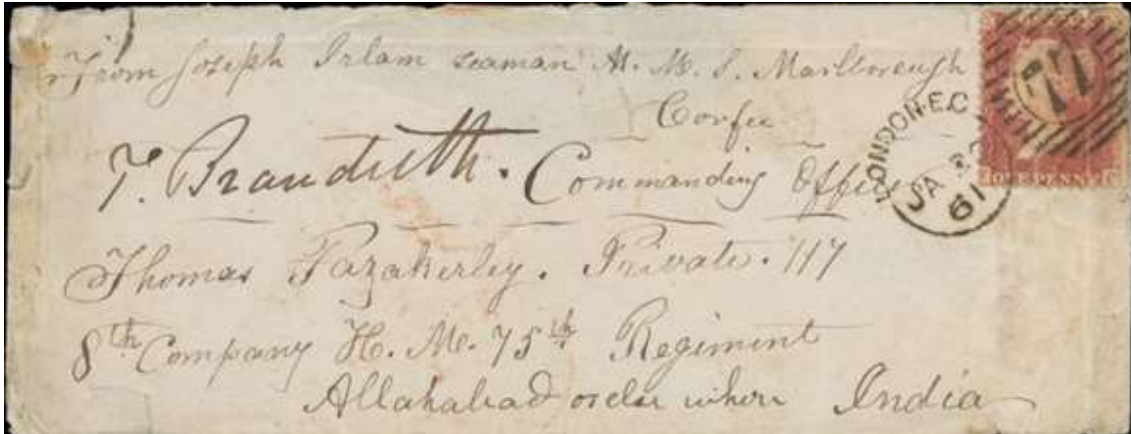 From Joseph Irlam seaman H. M. S. Marlborough
Corfu
T. Brandreth. Commanding Officer
Thomas Fazakerley. Private. 117
8th Company H. M. 75th Regiment
Allahabad or else where India
LONDON·E.C
JA
61
77
ONE PENNY